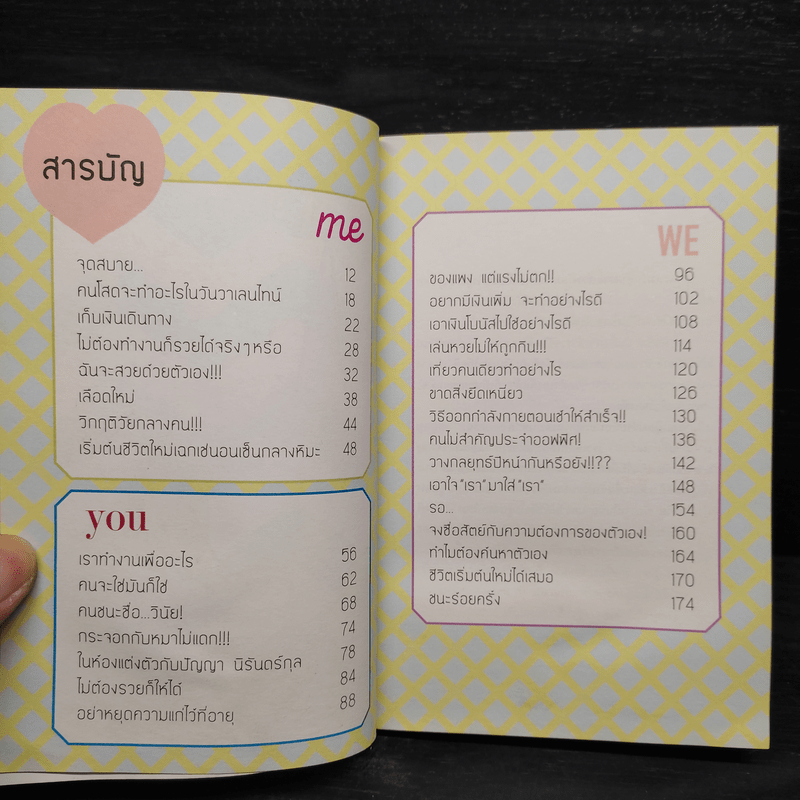 สารบัญ
me
จุดสบาย... 12
คนโสดจะทำอะไรในวันวาเลนไทน์ 18
เก็บเงินเดินทาง 22
ไม่ต้องทำงานก็รวยได้จริงๆหรือ 28
ฉันจะสวยด้วยตัวเอง!!! 32
เลือดใหม่ 38
วิกฤติวัยกลางคน!!! 44
เริ่มต้นชีวิตใหม่เฉกเช่นอนเซ็นกลางหิมะ 48
you
เราทำงานเพื่ออะไร 56
คนจะใช่มันก็ใช่ 62
คนชนะชื่อ...วินัย! 68
กระจอกกับหมาไม่แดก!!! 74
ในห้องแต่งตัวกับปัญญา นิรันดร์กุล 78
ไม่ต้องรวยก็ให้ได้ 84
อย่าหยุดความแก่ไว้ที่อายุ 88
WE
ของแพง แต่แรงไม่ตก!! 96
อยากมีเงินเพิ่ม จะทำอย่างไรดี 102
เอาเงินโบนัสไปใช้อย่างไรดี 108
เล่นหวยไม่ให้ถูกกิน!!! 114
เที่ยวคนเดียวทำอย่างไร 120
ขาดสิ่งยึดเหนี่ยว 126
วิธีออกกำลังกายตอนเช้าให้สำเร็จ!! 130
คนไม่สำคัญประจำออฟฟิศ! 136
วางกลยุทธ์ปีหน้ากันหรือยัง!!?? 142
เอาใจ"เรา"มาใส่"เรา" 148
รอ... 154
จงซื่อสัตย์กับความต้องการของตัวเอง! 160
ทำไมต้องค้นหาตัวเอง 164
ชีวิตเริ่มต้นใหม่ได้เสมอ 170
ชนะร้อยครั้ง 174